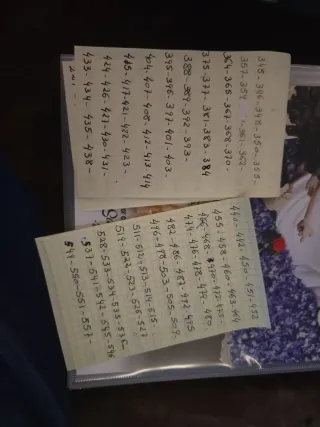 345-346-348-350-355-
357-358- 361-362-
364-365-367-368-370-
375-377-381-383-384
388-389-392-393-
395-396-397-401-403-
404-407-408-412-413-414
415-417-421-422-423-
424-426-427-430-431-
433-434-435-438-
450-451-452
455-458-460-463-464
466-468-470-472-473-
474-476-478-479-480
482-486-487-492-495
496-498-503-505-509-
511-512-513-514-515
519-522-523-526-527
528-533-534-535-536-
537-541-542-545-546
549-550-551-557-